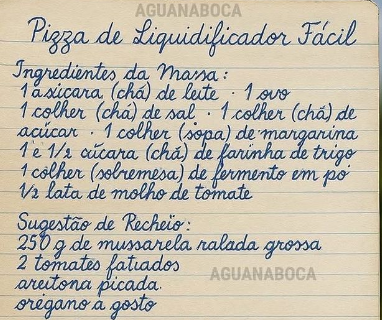 AGUANABOCA
Pizza de Liquidificador Fácil
Ingredientes da Massa:
1 axicara (chá) de leite · 1 ovo
1 colher (chá) de sal · 1 colher (chá) de
acúcar · 1 colher (sopa) de margarina
1 e 1/2 xícara (chá) de farinha de trigo
1 colher (sobremesa) de fermento em pó
1/2 lata de molho de tomate
Sugestão de Recheio:
250 g de mussarela ralada grossa
2 tomates fatiados
AGUANABOCA
areitona picada
orégano a gosto